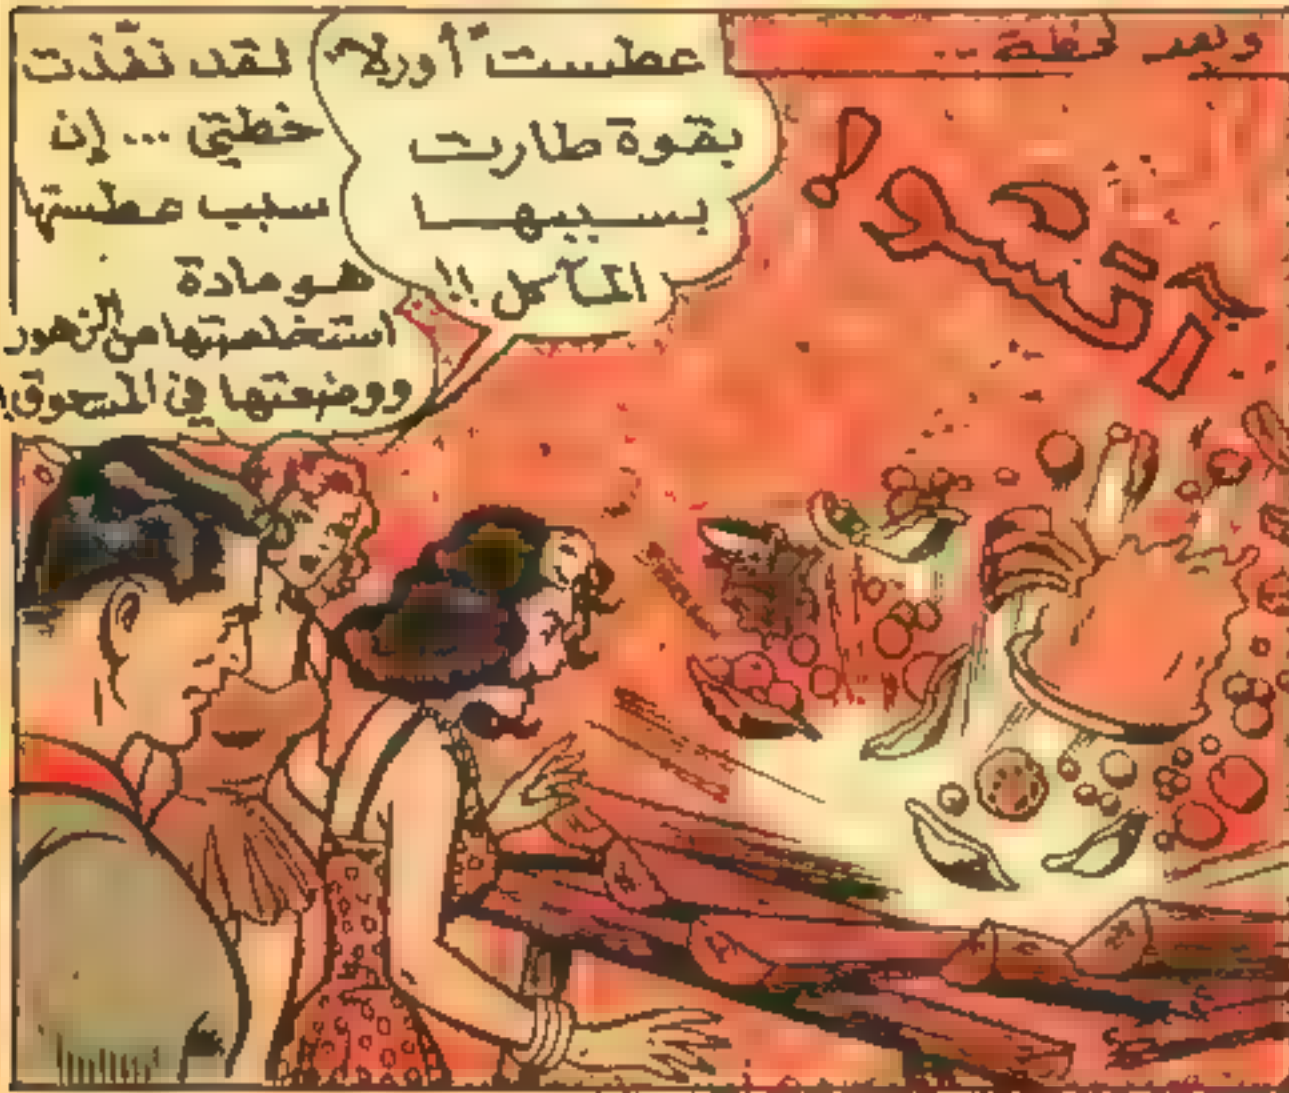 وبعد لحظة ..
آتشو!
عطست "أورلا"
بقوة طارت
بسببها
المآكل !!
لقد نفّذت
خطتي ... إن
سبب عطستها
هو مادة
استخلصتها من الزهور
ووضعتها في المسحوق